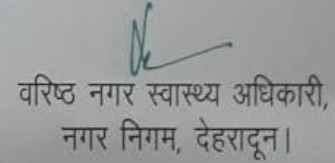 वरिष्ठ नगर स्वास्थ्य अधिकारी,
नगर निगम, देहरादून।